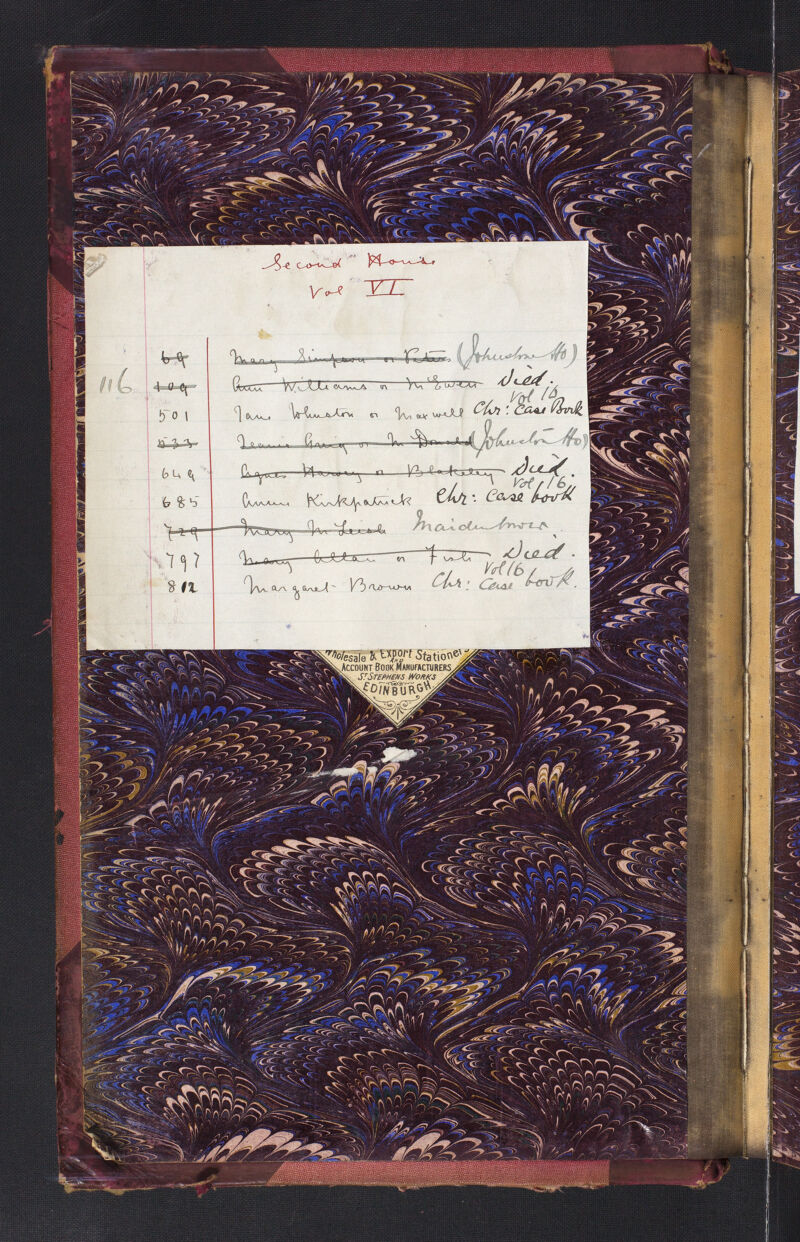 Second House
Vol VI
69 Mary Simpson or Peters (Johnstone Ho)
116 109 Ann Williams or McEwen Died.
501 Jane Johnston or Maxwell Chr: Case Book Vol 16
533 Jeanie Greig or McDonald (Johnston Ho)
649 Agnes Harvey or Blakeley Died.
685 Annie Kirkpatrick Chr: Case book Vol 16
729 Mary McLeish Maidenbower
797 Mary Allan or Fish Died.
812 Margaret Brown Chr: Case book. Vol 16
Wholesale & Export Stationers
AND
ACCOUNT BOOK MANUFACTURERS
ST STEPHENS WORKS
EDINBURGH